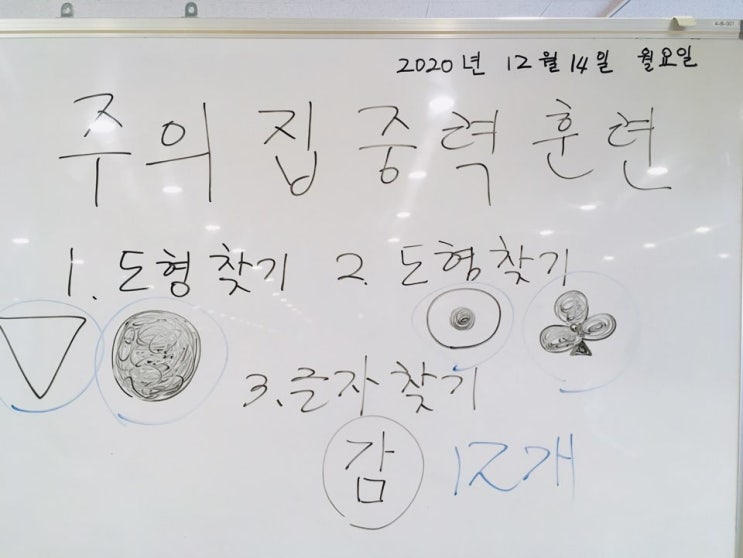 2020년 12월 14일 월요일
주의 집중력 훈련
1. 도형 찾기 2. 도형 찾기
3. 글자 찾기
감 12개